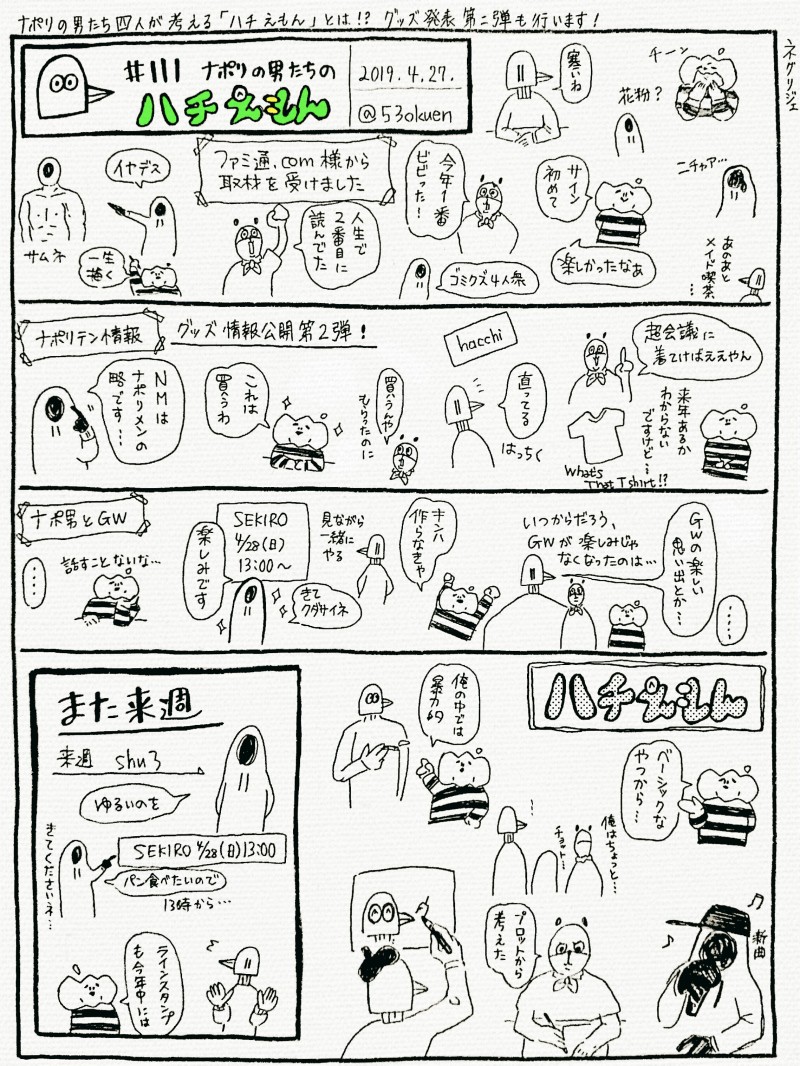 ナポリの男たち四人が考える「ハチえもん」とは!? グッズ発表第二弾も行います!
ネグリジェ
#111 ナポリの男たちの
ハチえもん
2019.4.27.
@53okuen
寒いね
チーン
花粉?
ニチャア…
イヤデス
サムネ
一生
描く
ファミ通.com様から
取材を受けました
人生で
2番目に
読んでた
今年1番
ビビった!
ゴミクズ4人衆
サイン
初めて
楽しかったなあ
あのあと
メイド喫茶
…
ナポリテン情報
グッズ情報公開第2弾!
NMは
ナポリメンの
略です…
これは
買うわ
買うんや
もらったのに
hacchi
直ってる
はっちく
超会議に
着てけばええやん
来年あるか
わからない
ですけど…
What's
That Tshirt!?
ナポ男とGW
…
話すことないな…
SEKIRO
4/28(日)
13:00~
楽しみです
きて
クダサイネ
見ながら
一緒に
やる
キンハ
作らなきゃ
いつからだろう、
GWが楽しみじゃ
なくなったのは…
GWの楽しい
思い出とか…
……
また来週
来週 shu3
ゆるいのを
SEKIRO 4/28(日)13:00
きてくださいネ…
パン食べたいので
13時から…
ラインスタンプ
も今年中には
ハチえもん
俺の中では
暴力的
ベーシックな
やつから…
俺はちょっと…
チョット…
プロットから
考えた
新曲